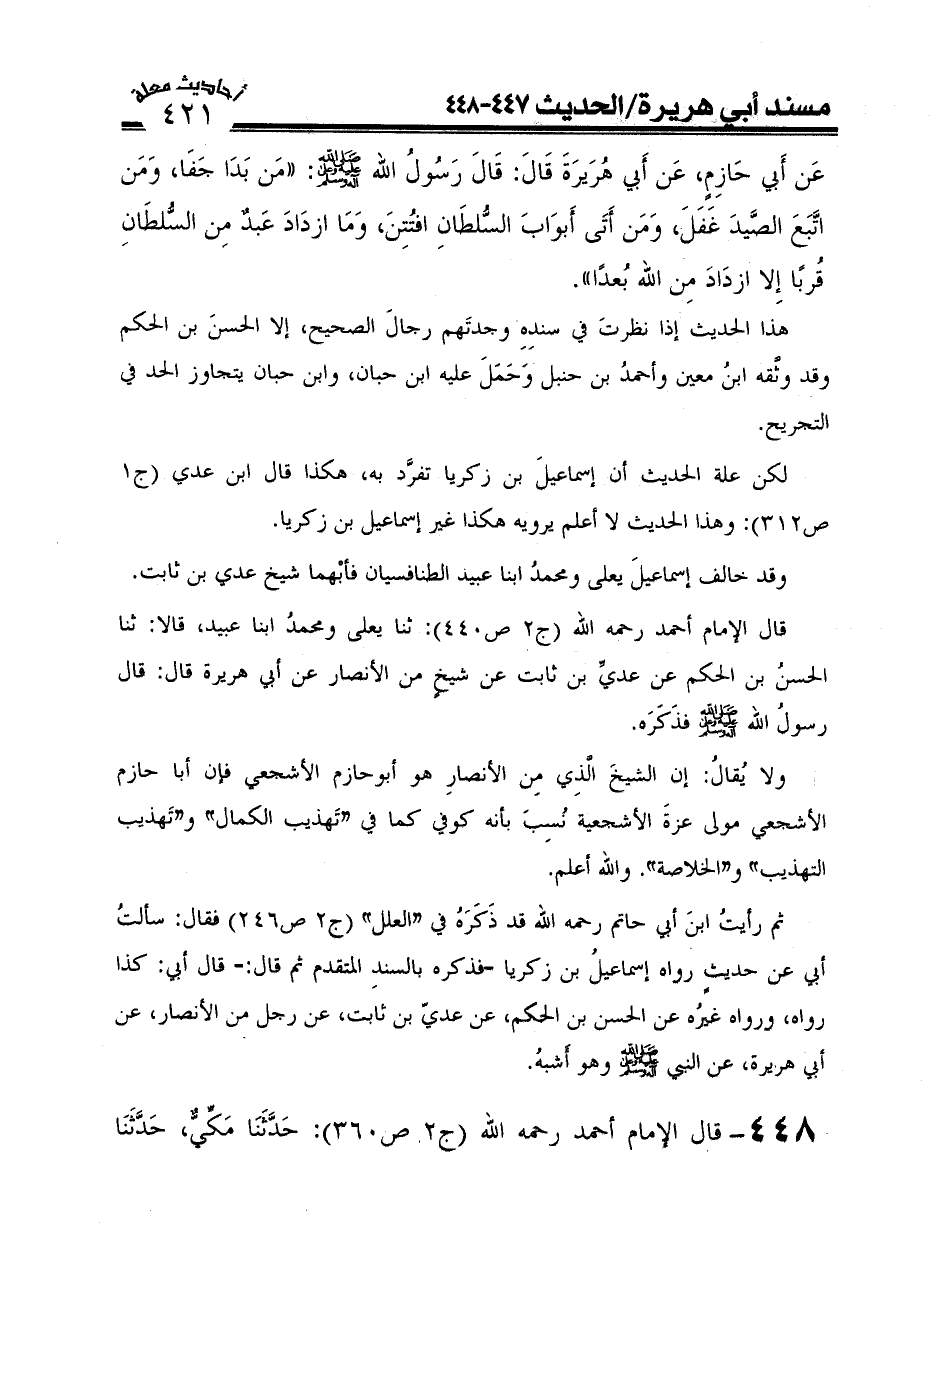 مسند أبي هريرة/الحديث ٤٤٧-٤٤٨
أحاديث معلة
٤٢١
عَن أَبي حَازِمٍ، عَن أَبي هُرَيرَةَ قَالَ: قَالَ رَسُولُ الله ﷺ: «مَن بَدَا جَفَا، وَمَن
اتَّبَعَ الصَّيدَ غَفَلَ، وَمَن أَتَى أَبوَابَ السُّلطَانِ افتُتِنَ، وَمَا ازدَادَ عَبدٌ مِن السُّلطَانِ
قُربًا إِلا ازدَادَ مِن الله بُعدًا».
هذا الحديث إذا نظرتَ في سندِهِ وجدتَهم رجالَ الصحيح، إلا الحسنَ بن الحكم
وقد وثَّقه ابنُ معين وأحمدُ بن حنبل وَحَمَلَ عليه ابن حبان، وابن حبان يتجاوز الحد في
التجريح.
لكن علة الحديث أن إسماعيلَ بن زكريا تفرَّد به، هكذا قال ابن عدي (ج١
ص٣١٢): وهذا الحديث لا أعلم يرويه هكذا غير إسماعيل بن زكريا.
وقد خالف إسماعيلَ يعلى ومحمدُ ابنا عبيد الطنافسيان فأبْهما شيخ عدي بن ثابت.
قال الإمام أحمد رحمه الله (ج٢ ص٤٤٠): ثنا يعلى ومحمدُ ابنا عبيد، قالا: ثنا
الحسنُ بن الحكم عن عديِّ بن ثابت عن شيخٍ من الأنصار عن أبي هريرة قال: قال
رسولُ الله ﷺ فذَكَرَه.
ولا يُقالُ: إن الشيخَ الَّذي مِن الأنصارِ هو أبوحازم الأشجعي فإن أبا حازم
الأشجعي مولى عزةَ الأشجعية نُسِبَ بأنه كوفي كما في "تَهذيب الكمال" و"تَهذيب
التهذيب" و"الخلاصة". والله أعلم.
ثم رأيتُ ابنَ أبي حاتم رحمه الله قد ذَكَرَهُ في "العلل" (ج٢ ص٢٤٦) فقال: سألتُ
أبي عن حديثٍ رواه إسماعيلُ بن زكريا -فذكره بالسندِ المتقدم ثم قال:- قال أبي: كذا
رواه، ورواه غيرُه عن الحسن بن الحكم، عن عديّ بن ثابت، عن رجل من الأنصار، عن
أبي هريرة، عن النبي ﷺ وهو أَشبهُ.
٤٤٨- قال الإمام أحمد رحمه الله (ج٢ ص٣٦٠): حَدَّثَنَا مَكِّيٌّ، حَدَّثَنَا